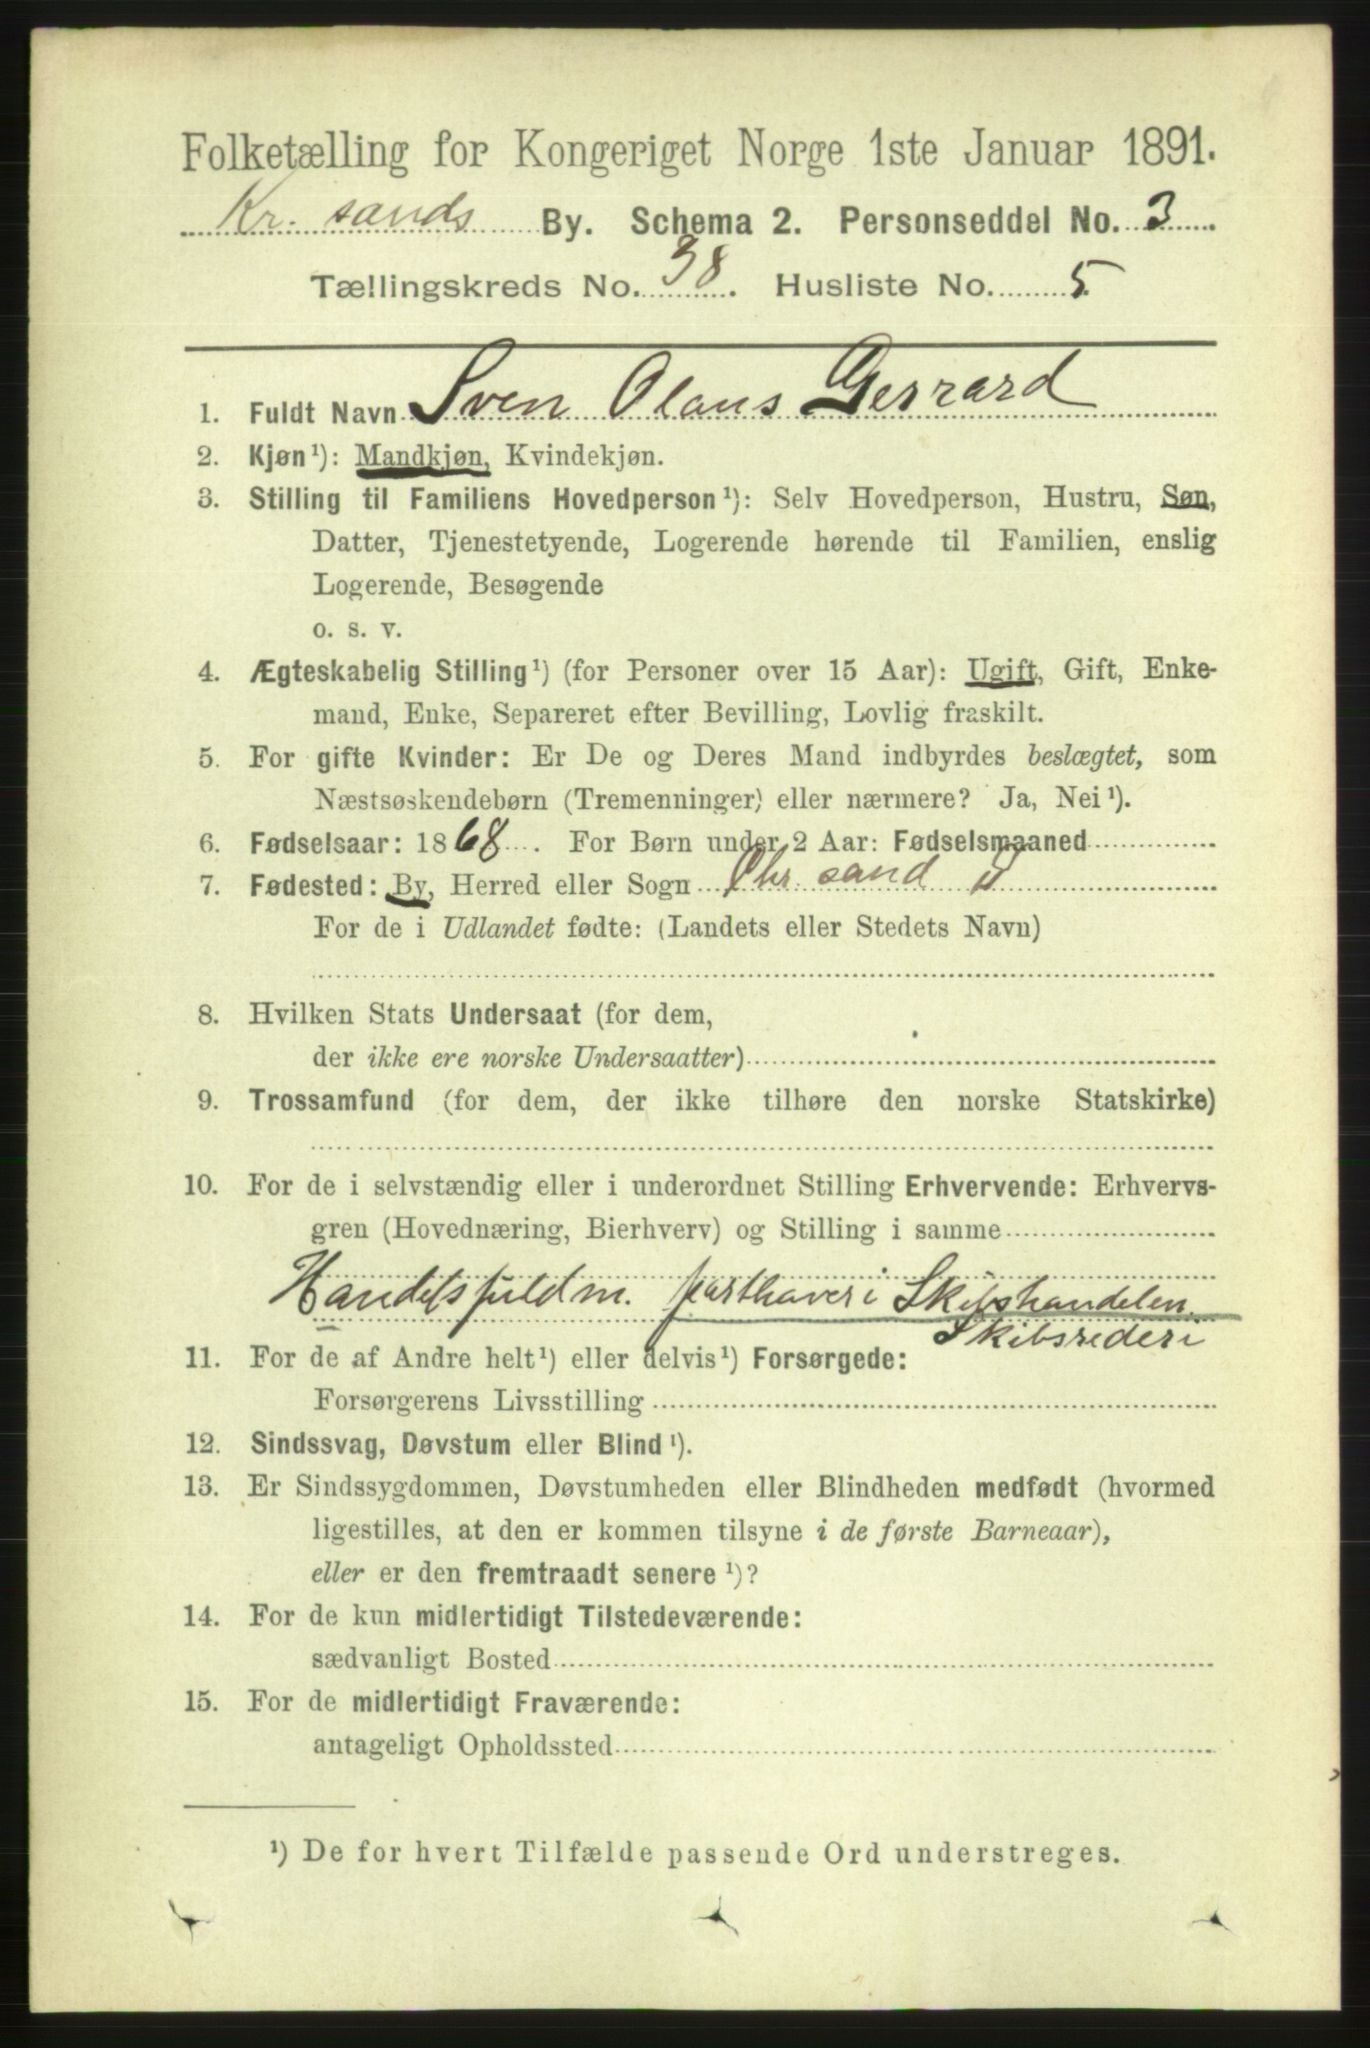 Folketælling for Kongeriget Norge 1ste Januar 1891.
Kr. sands By. Schema 2. Personseddel No. 3
Tællingskreds No. 38. Husliste No. 5
1. Fuldt Navn Sven Olaus Gerrard
2. Kjøn¹): Mandkjøn, Kvindekjøn.
3. Stilling til Familiens Hovedperson¹): Selv Hovedperson, Hustru, Søn,
Datter, Tjenestetyende, Logerende hørende til Familien, enslig
Logerende, Besøgende
o. s. v.
4. Ægteskabelig Stilling¹) (for Personer over 15 Aar): Ugift, Gift, Enke-
mand, Enke, Separeret efter Bevilling, Lovlig fraskilt.
5. For gifte Kvinder: Er De og Deres Mand indbyrdes beslægtet, som
Næstsøskendebørn (Tremenninger) eller nærmere? Ja, Nei¹).
6. Fødselsaar: 1868. For Børn under 2 Aar: Fødselsmaaned
7. Fødested: By, Herred eller Sogn Chr. sand
For de i Udlandet fødte: (Landets eller Stedets Navn)
8. Hvilken Stats Undersaat (for dem,
der ikke ere norske Undersaatter)
9. Trossamfund (for dem, der ikke tilhøre den norske Statskirke)
10. For de i selvstændig eller i underordnet Stilling Erhvervende: Erhvervs-
gren (Hovednæring, Bierhverv) og Stilling i samme
Handelsfuldm. parthaver i Skibshandelen
Skibsrederi
11. For de af Andre helt¹) eller delvis¹) Forsørgede:
Forsørgerens Livsstilling
12. Sindssvag, Døvstum eller Blind¹).
13. Er Sindssygdommen, Døvstumheden eller Blindheden medfødt (hvormed
ligestilles, at den er kommen tilsyne i de første Barneaar),
eller er den fremtraadt senere¹)?
14. For de kun midlertidigt Tilstedeværende:
sædvanligt Bosted
15. For de midlertidigt Fraværende:
antageligt Opholdssted
¹) De for hvert Tilfælde passende Ord understreges.